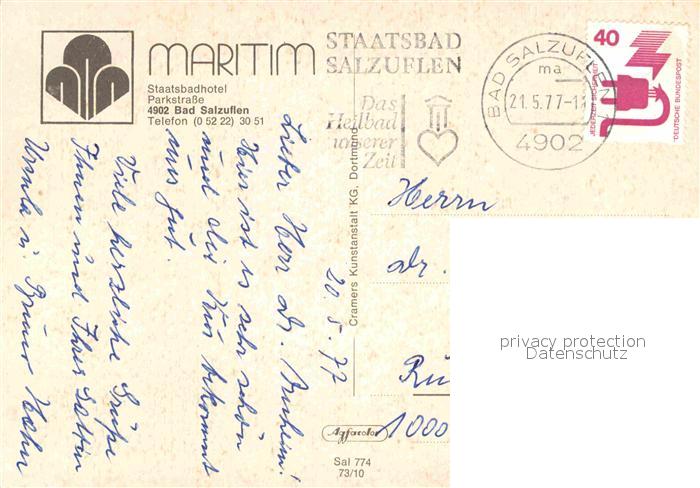 MARITIM
Staatsbadhotel
Parkstraße
4902 Bad Salzuflen
Telefon (0 52 22) 30 51
STAATSBAD
SALZUFLEN
Das
Heilbad
unserer
Zeit
BAD SALZUFLEN 1
ma
21.5.77-1
4902
40
JEDERZEIT SICHERHEIT
DEUTSCHE BUNDESPOST
20.5.77
Lieber Herr Dr.
Hier ist es sehr schön
und die Kur bekommt
uns gut.
Viele herzliche Grüße
Ihnen und Ihrer Gattin
Ursula u. Bruno
Cramers Kunstanstalt KG, Dortmund
Herrn
Dr.
1000
Agfacolor
Sal 774
73/10
privacy protection
Datenschutz